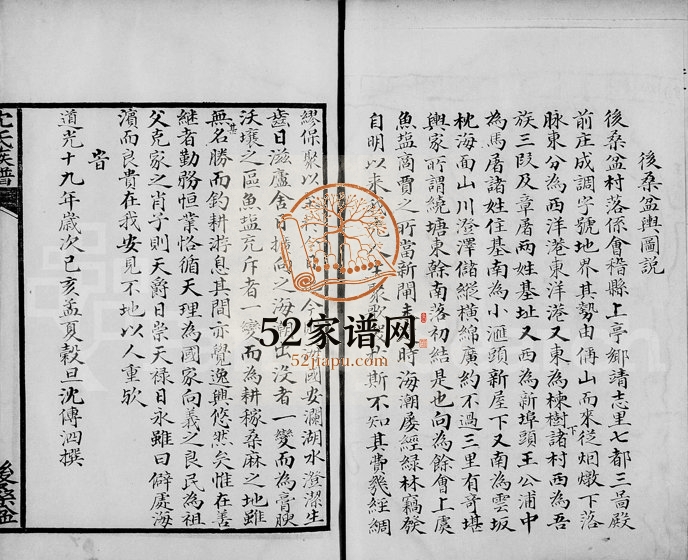 後桑盆輿圖説
後桑盆村落係會稽縣上亭鄉靖志里七都三啚殿
前庄成調字號地界其勢由偁山而來從烟燉下落
脉東分為西洋港東洋港又東為楝樹下諸村西為吾
族三叚及章屠兩姓基址又西為新埠頭王公浦中
為馬屠諸姓住基南為小滙頭新屋下又南為雲坂
枕海面山川澄澤儲縱橫綿廣約不過三里有奇堪
輿家所謂繞塘東幹南落初結是也向為餘會上虞
魚塩商賈之所當新閘未時海潮屡經綠林竊發
自明以來人生聚斯不知其費幾經綢
繆保聚以今國安瀾湖水澄潔生
齒日滋廬舍向之海潮出没者一變而為膏腴
沃壤之區魚塩充斥者一變而為耕稼桑麻之地雖
無名勝而釣耕游息其間亦覺逸興悠然矣惟在善
继者勤勝恒業恪循天理為國家向義之良民為祖
父克家之肖子則天爵日崇天禄日永雖曰僻處海
濱而良貴在我安見不地以人重欤
旹
道光十九年歲次己亥孟夏穀旦沈傳泗撰
沈氏族譜
後桑盆
52家谱网
52jiapu.com